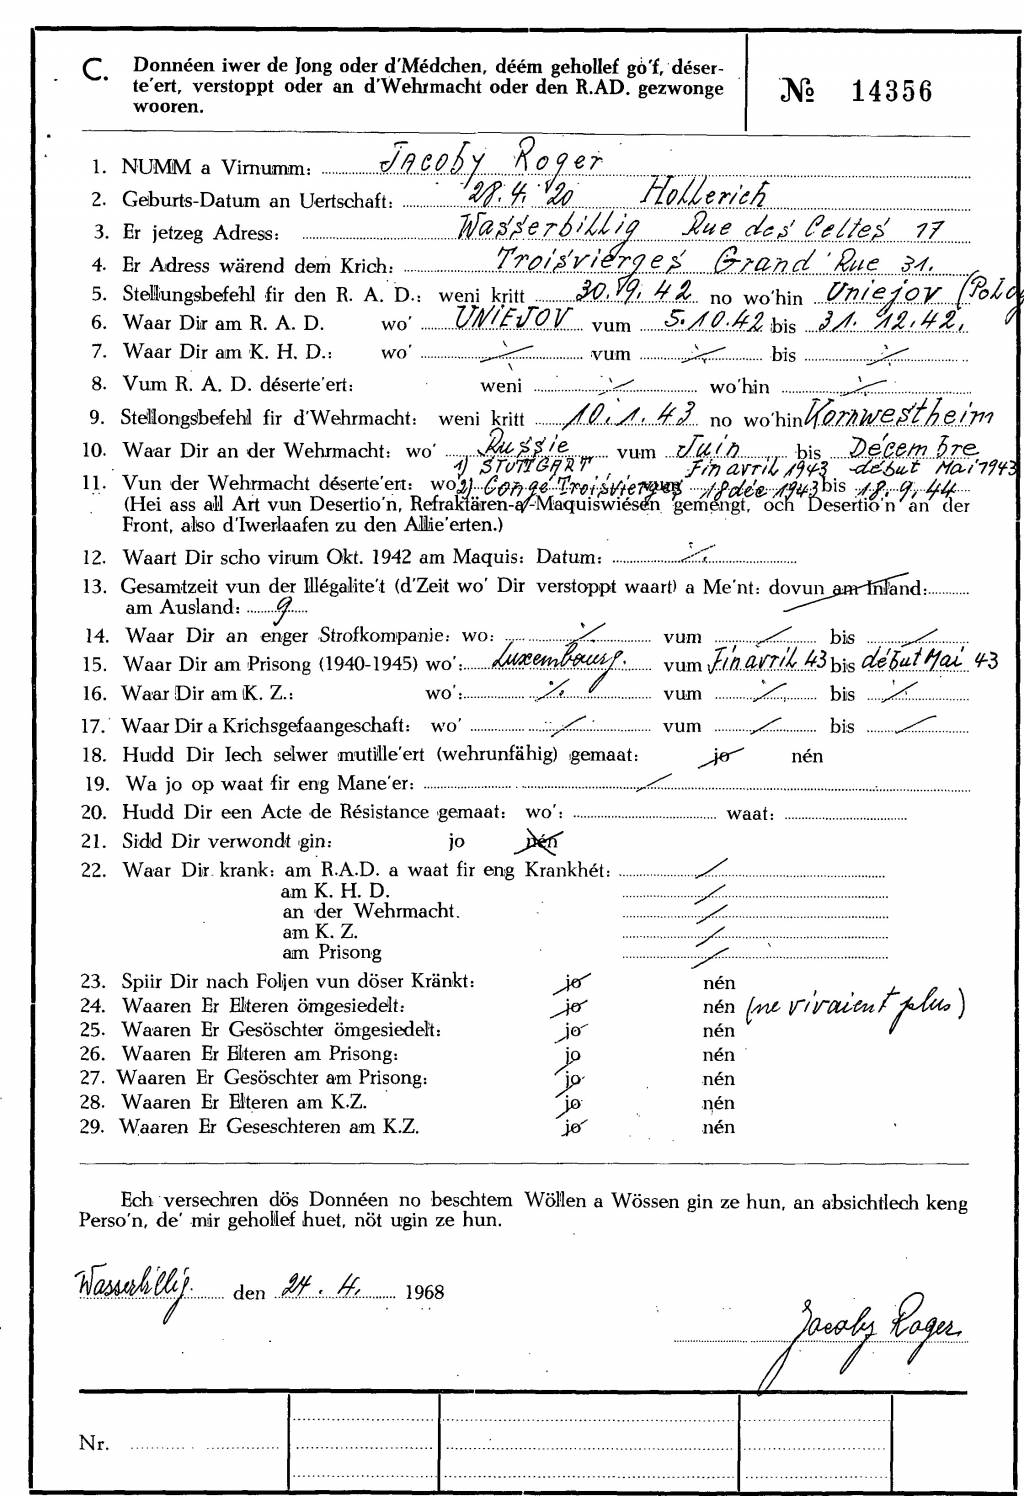 C. Donnéen iwer de Jong oder d'Médchen, déém gehollef gö'f, déser-
te'ert, verstoppt oder an d'Wehrmacht oder den R.AD. gezwonge
wooren.
№ 14356
1. NUMM a Virnumm: Jacoby Roger
2. Geburts-Datum an Uertschaft: 28.4.'20 Hollerich
3. Er jetzeg Adress: Wasserbillig Rue des Celtes 17
4. Er Adress wärend dem Krich: Troisvierges Grand'Rue 31.
5. Stellungsbefehl fir den R. A. D.: weni kritt 30.9.42 no wo'hin Uniejov
6. Waar Dir am R. A. D. wo' UNIEJOV vum 5.10.42 bis 31.12.42.
7. Waar Dir am K. H. D.: wo' vum bis
8. Vum R. A. D. déserte'ert: weni wo'hin
9. Stellongsbefehl fir d'Wehrmacht: weni kritt 10.1.43 no wo'hin Kornwestheim
10. Waar Dir an der Wehrmacht: wo' Russie vum Juin bis Décembre
1) STUTTGART Fin avril 1943 début Mai 1943
11. Vun der Wehrmacht déserte'ert: wo 2) Congé Troisvierges 18 déc 1943 bis 18.9.44
(Hei ass all Art vun Desertio'n, Refraktären-a'-Maquiswiésen gemengt, och Desertio'n an der
Front, also d'Iwerlaafen zu den Allie'erten.)
12. Waart Dir scho virum Okt. 1942 am Maquis: Datum:
13. Gesamtzeit vun der Illégalite't (d'Zeit wo' Dir verstoppt waart) a Me'nt: dovun am Inland:
am Ausland: 9
14. Waar Dir an enger Strofkompanie: wo: vum bis
15. Waar Dir am Prisong (1940-1945) wo': Luxembourg. vum Fin avril 43 bis début Mai 43
16. Waar Dir am K. Z.: wo': vum bis
17. Waar Dir a Krichsgefaangeschaft: wo' vum bis
18. Hudd Dir Iech selwer mutille'ert (wehrunfähig) gemaat: jo nén
19. Wa jo op waat fir eng Mane'er:
20. Hudd Dir een Acte de Résistance gemaat: wo': waat:
21. Sidd Dir verwondt gin: jo nén
22. Waar Dir krank: am R.A.D. a waat fir eng Krankhét:
am K. H. D.
an der Wehrmacht.
am K. Z.
am Prisong
23. Spiir Dir nach Foljen vun döser Kränkt: jo nén
24. Waaren Er Elteren ömgesiedelt: jo nén (ne vivaient plus)
25. Waaren Er Gesöschter ömgesiedelt: jo nén
26. Waaren Er Elteren am Prisong: jo nén
27. Waaren Er Gesöschter am Prisong: jo nén
28. Waaren Er Elteren am K.Z. jo nén
29. Waaren Er Geseschteren am K.Z. jo nén
Ech versechren dös Donnéen no beschtem Wöllen a Wössen gin ze hun, an absichtlech keng
Perso'n, de' mir gehollef huet, nöt ugin ze hun.
Wasserbillig. den 24.4. 1968
Jacoby Roger
Nr.